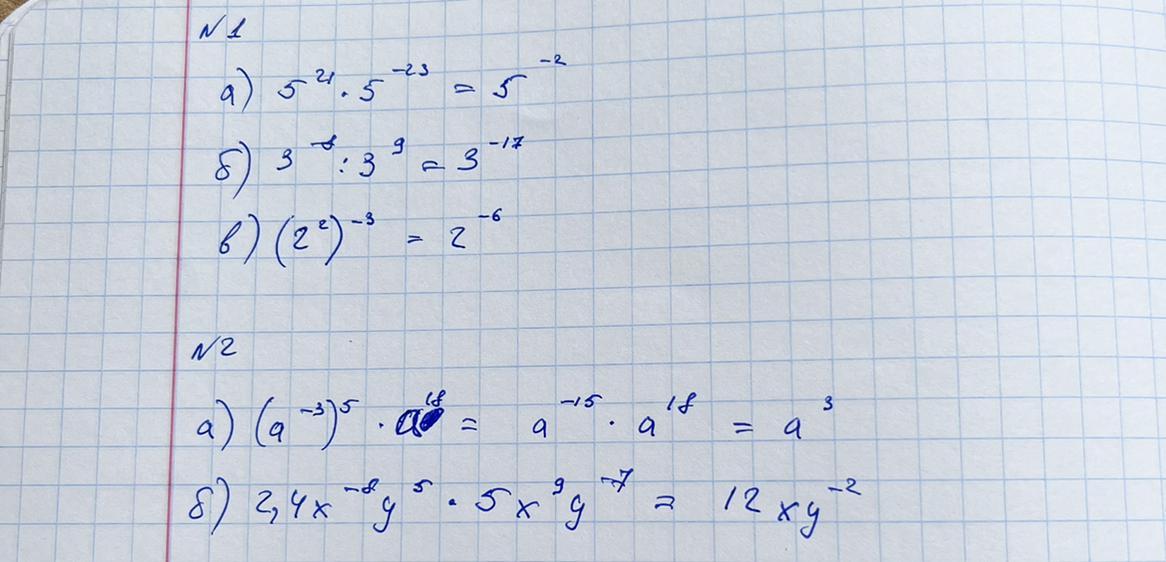 №1
а) 5²¹ · 5⁻²³ = 5⁻²
б) 3⁻⁸ : 3⁹ = 3⁻¹⁷
в) (2²)⁻³ = 2⁻⁶
№2
а) (a⁻³)⁵ · a¹⁸ = a⁻¹⁵ · a¹⁸ = a³
б) 2,4x⁻⁸y⁵ · 5x⁹y⁻⁷ = 12xy⁻²